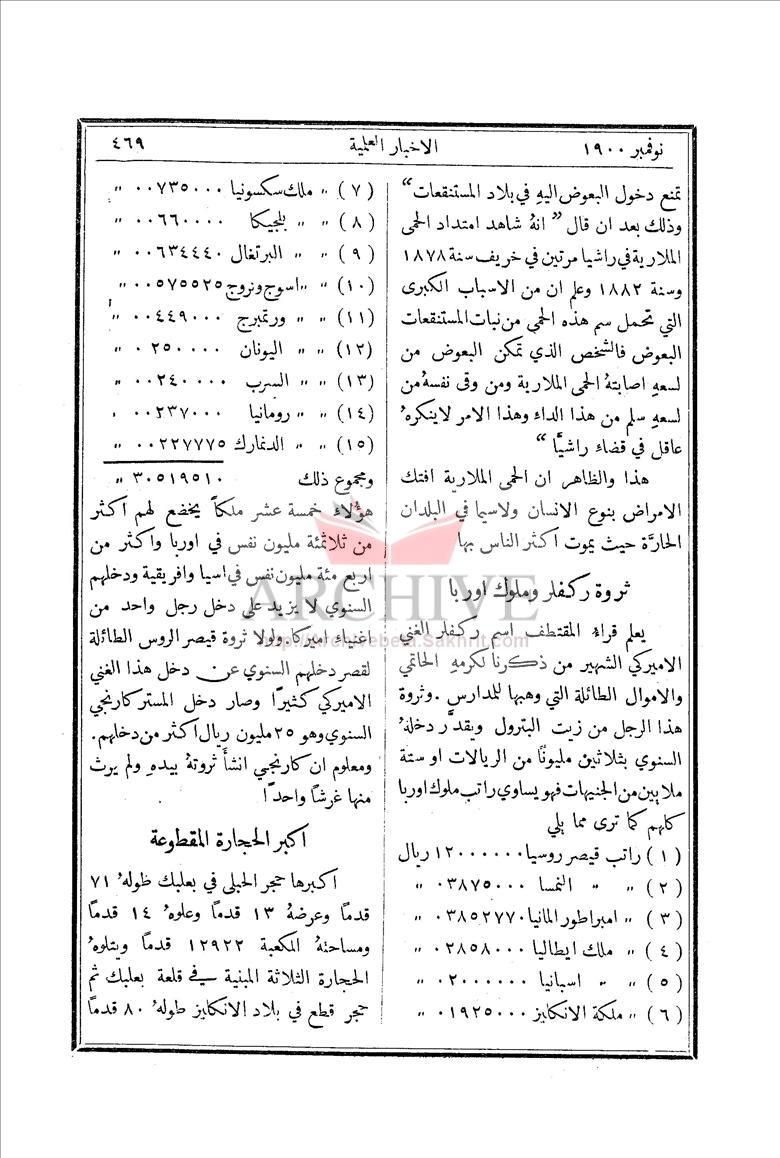 نوفمبر ١٩٠٠
الاخبار العلمية
٤٦٩
تمنع دخول البعوض اليهِ في بلاد المستنقعات“
وذلك بعد ان قال ” انهُ شاهد امتداد الحمى
الملارية في راشيا مرتين في خريف سنة ١٨٧٨
وسنة ١٨٨٢ وعلم ان من الاسباب الكبرى
التي تحمل سم هذه الحمى من نبات المستنقعات
البعوض فالشخص الذي تمكن البعوض من
لسعهِ اصابتهُ الحمى الملارية ومن وقى نفسهُ من
لسعهِ سلم من هذا الداء وهذا الامر لا ينكرهُ
عاقل في قضاء راشيَّا “
هذا والظاهر ان الحمى الملارية افتك
الامراض بنوع الانسان ولاسيما في البلدان
الحارَّة حيث يموت اكثر الناس بها
ثروة ركفلر وملوك اوربا
يعلم قراءُ المقتطف اسم ركفلر الغني
الاميركي الشهير من ذكرنا لكرمهِ الحاتمي
والاموال الطائلة التي وهبها للمدارس . وثروة
هذا الرجل من زيت البترول ويقدَّر دخلهُ
السنوي بثلاثين مليونًا من الريالات او ستة
ملايين من الجنيهات فهو يساوي راتب ملوك اوربا
كلهم كما ترى مما يلي
(١) راتب قيصر روسيا ١٢٠٠٠٠٠٠ ريال
(٢) ״ ״ النمسا ٠٣٨٧٥٠٠٠ ״
(٣) ״ امبراطور المانيا ٠٣٨٥٢٧٧٠ ״
(٤) ״ ملك ايطاليا ٠٢٨٥٨٠٠٠ ״
(٥) ״ ״ اسبانيا ٠٢٠٠٠٠٠٠ ״
(٦) ״ ملكة الانكليز ٠١٩٢٥٠٠٠ ״
(٧) ״ ملك سكسونيا ٠٠٧٣٥٠٠٠ ״
(٨) ״ ״ بلجيكا ٠٠٦٦٠٠٠٠ ״
(٩) ״ ״ البرتغال ٠٠٦٣٤٤٤٠ ״
(١٠) ״ ״ اسوج ونروج ٠٠٥٧٥٥٢٥ ״
(١١) ״ ״ ورتمبرج ٠٠٤٤٩٠٠٠ ״
(١٢) ״ ״ اليونان ٠٠٢٥٠٠٠٠ ״
(١٣) ״ ״ السرب ٠٠٢٤٠٠٠٠ ״
(١٤) ״ ״ رومانيا ٠٠٢٣٧٠٠٠ ״
(١٥) ״ ״ الدنمارك ٠٠٢٢٧٧٧٥ ״
ومجموع ذلك ٣٠٥١٩٥١٠ ״
هؤلاء خمسة عشر ملكًا يخضع لهم اكثر
من ثلاثمئة مليون نفس في اوربا واكثر من
اربع مئة مليون نفس في اسيا وافريقية ودخلهم
السنوي لا يزيد على دخل رجل واحد من
اغنياء اميركا. ولولا ثروة قيصر الروس الطائلة
لقصر دخلهم السنوي عن دخل هذا الغني
الاميركي كثيرًا وصار دخل المستر كارنجي
السنوي وهو ٢٥ مليون ريال اكثر من دخلهم.
ومعلوم ان كارنجي انشأ ثروتهُ بيدهِ ولم يرث
منها غرشًا واحدًا
اكبر الحجارة المقطوعة
اكبرها حجر الحبلى في بعلبك طولهُ ٧١
قدمًا وعرضهُ ١٣ قدمًا وعلوهُ ١٤ قدمًا
ومساحتهُ المكعبة ١٢٩٢٢ قدمًا ويتلوهُ
الحجارة الثلاثة المبنية في قلعة بعلبك ثم
حجر قطع في بلاد الانكليز طولهُ ٨٠ قدمًا
ARCHIVE
http://Archivebeta.Sakhrit.com